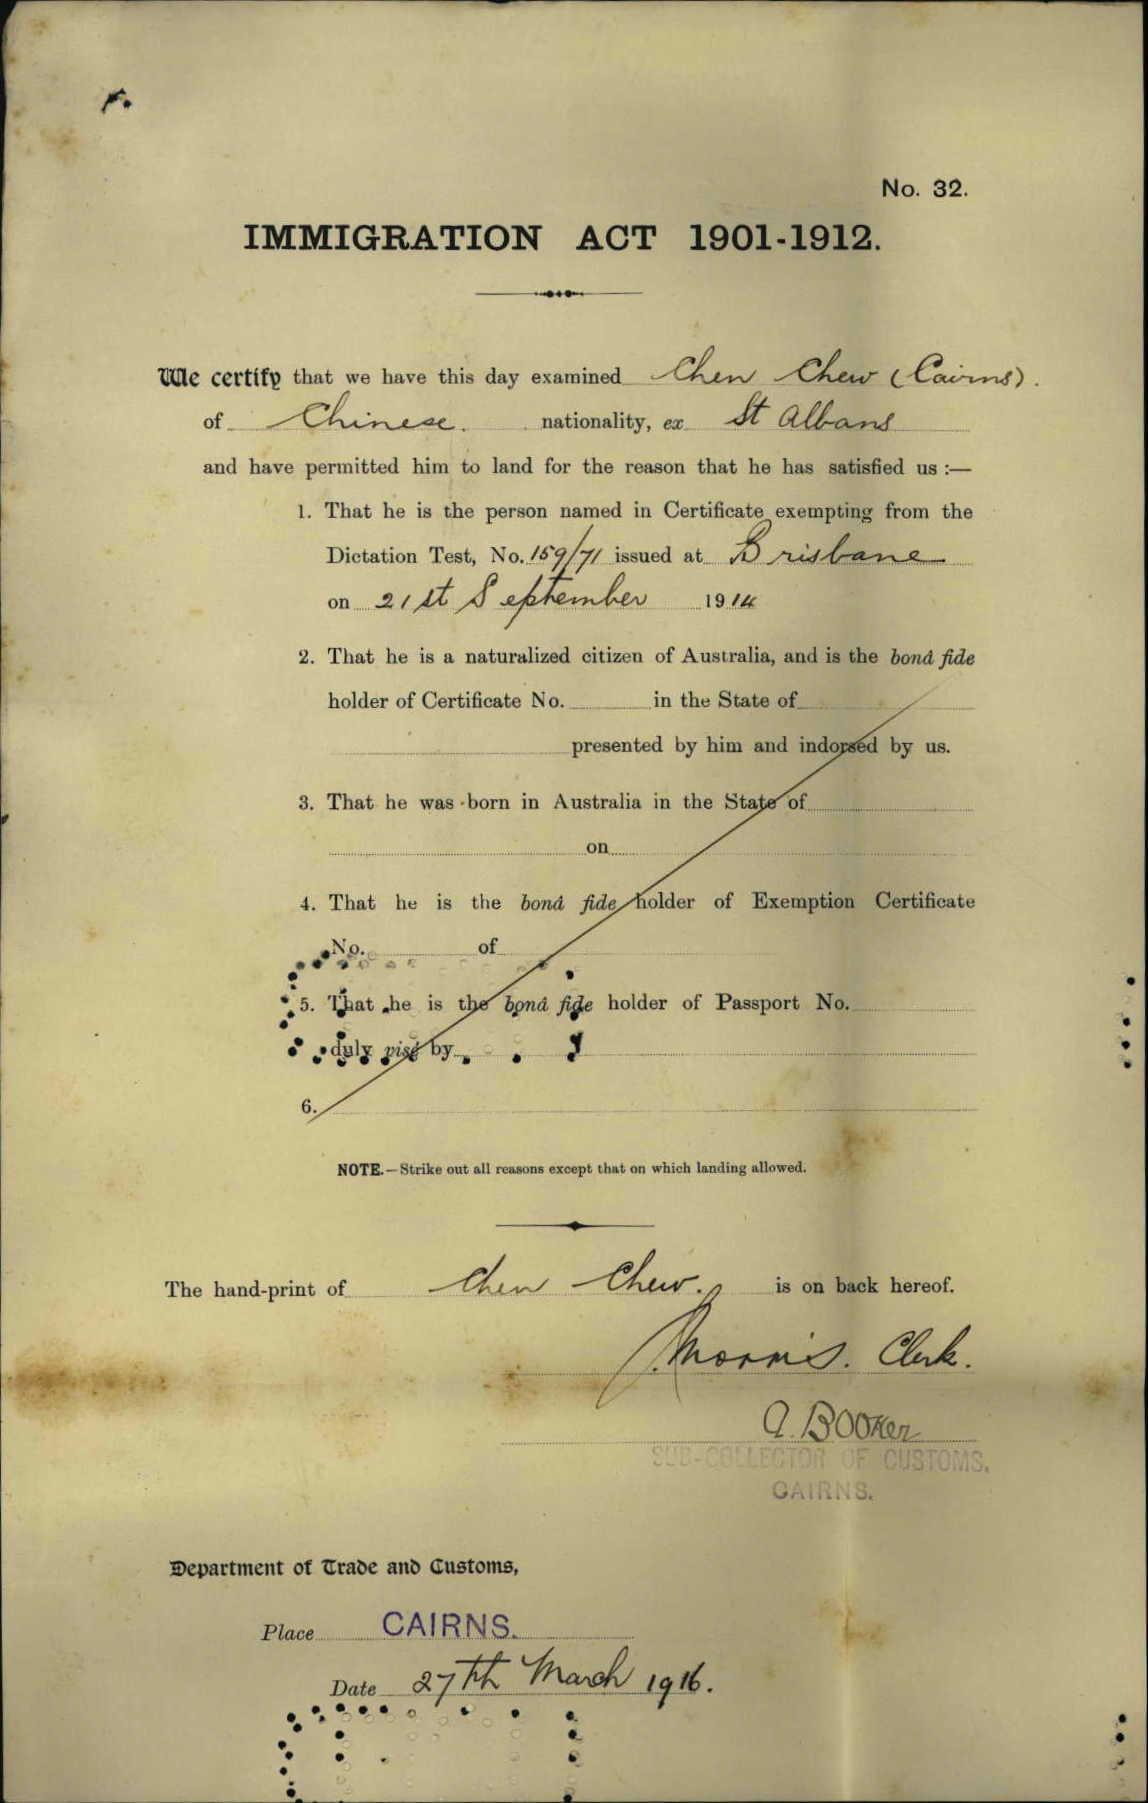 No. 32.
IMMIGRATION ACT 1901-1912.
We certify that we have this day examined Chen Chew (Cairns).
of Chinese. nationality, ex St Albans
and have permitted him to land for the reason that he has satisfied us :—
1. That he is the person named in Certificate exempting from the
Dictation Test, No. 159/71 issued at Brisbane
on 21st September 1914
2. That he is a naturalized citizen of Australia, and is the bonâ fide
holder of Certificate No. in the State of
presented by him and indorsed by us.
3. That he was born in Australia in the State of
on
4. That he is the bonâ fide holder of Exemption Certificate
No. of
5. That he is the bonâ fide holder of Passport No.
duly visé by
6.
NOTE.—Strike out all reasons except that on which landing allowed.
The hand-print of Chen Chew. is on back hereof.
J. Morris. Clerk.
A. Booker
SUB-COLLECTOR OF CUSTOMS.
CAIRNS.
Department of Trade and Customs,
Place CAIRNS.
Date 27th March 1916.